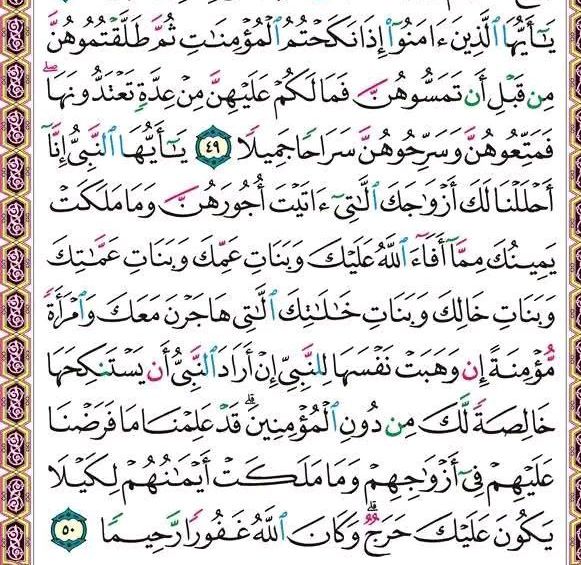 يَـٰٓأَيُّهَا ٱلَّذِينَ ءَامَنُوٓا۟ إِذَا نَكَحْتُمُ ٱلْمُؤْمِنَـٰتِ ثُمَّ طَلَّقْتُمُوهُنَّ
مِن قَبْلِ أَن تَمَسُّوهُنَّ فَمَا لَكُمْ عَلَيْهِنَّ مِنْ عِدَّةٍ تَعْتَدُّونَهَا ۖ
فَمَتِّعُوهُنَّ وَسَرِّحُوهُنَّ سَرَاحًا جَمِيلًا ٤٩ يَـٰٓأَيُّهَا ٱلنَّبِىُّ إِنَّآ
أَحْلَلْنَا لَكَ أَزْوَٰجَكَ ٱلَّـٰتِىٓ ءَاتَيْتَ أُجُورَهُنَّ وَمَا مَلَكَتْ
يَمِينُكَ مِمَّآ أَفَآءَ ٱللَّهُ عَلَيْكَ وَبَنَاتِ عَمِّكَ وَبَنَاتِ عَمَّـٰتِكَ
وَبَنَاتِ خَالِكَ وَبَنَاتِ خَـٰلَـٰتِكَ ٱلَّـٰتِى هَاجَرْنَ مَعَكَ وَٱمْرَأَةً
مُّؤْمِنَةً إِن وَهَبَتْ نَفْسَهَا لِلنَّبِىِّ إِنْ أَرَادَ ٱلنَّبِىُّ أَن يَسْتَنكِحَهَا
خَالِصَةً لَّكَ مِن دُونِ ٱلْمُؤْمِنِينَ ۗ قَدْ عَلِمْنَا مَا فَرَضْنَا
عَلَيْهِمْ فِىٓ أَزْوَٰجِهِمْ وَمَا مَلَكَتْ أَيْمَـٰنُهُمْ لِكَيْلَا
يَكُونَ عَلَيْكَ حَرَجٌ ۗ وَكَانَ ٱللَّهُ غَفُورًا رَّحِيمًا ٥٠